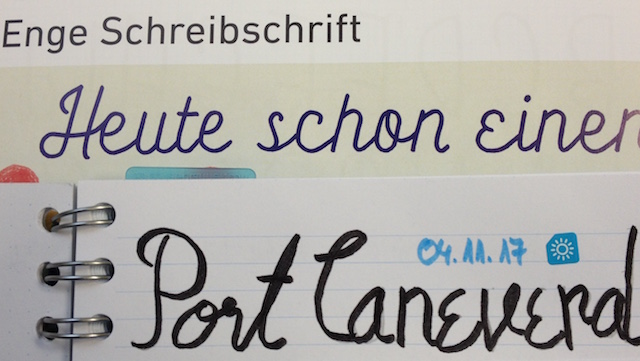 Enge Schreibschrift
Heute schon einen
04.11.17
Port Caneverd